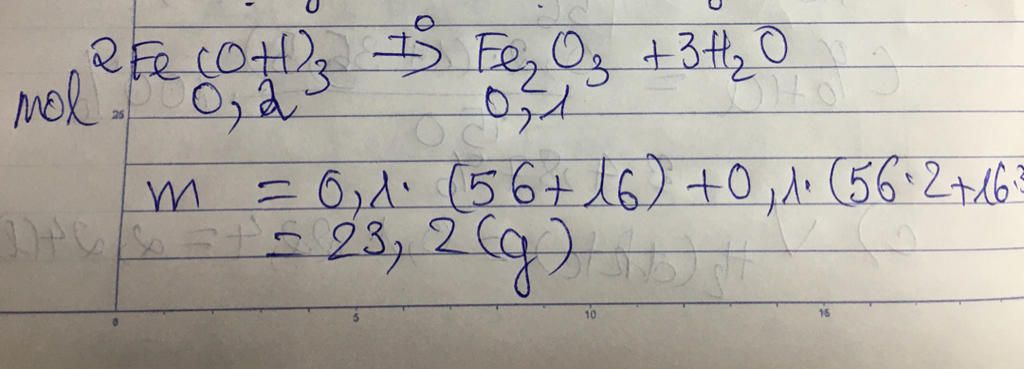 2Fe(OH)₃ →t° Fe₂O₃ + 3H₂O
mol 0,2 0,1
m = 0,1.(56+16)+0,1.(56.2+16.3
= 23,2(g)
0 5 10 15